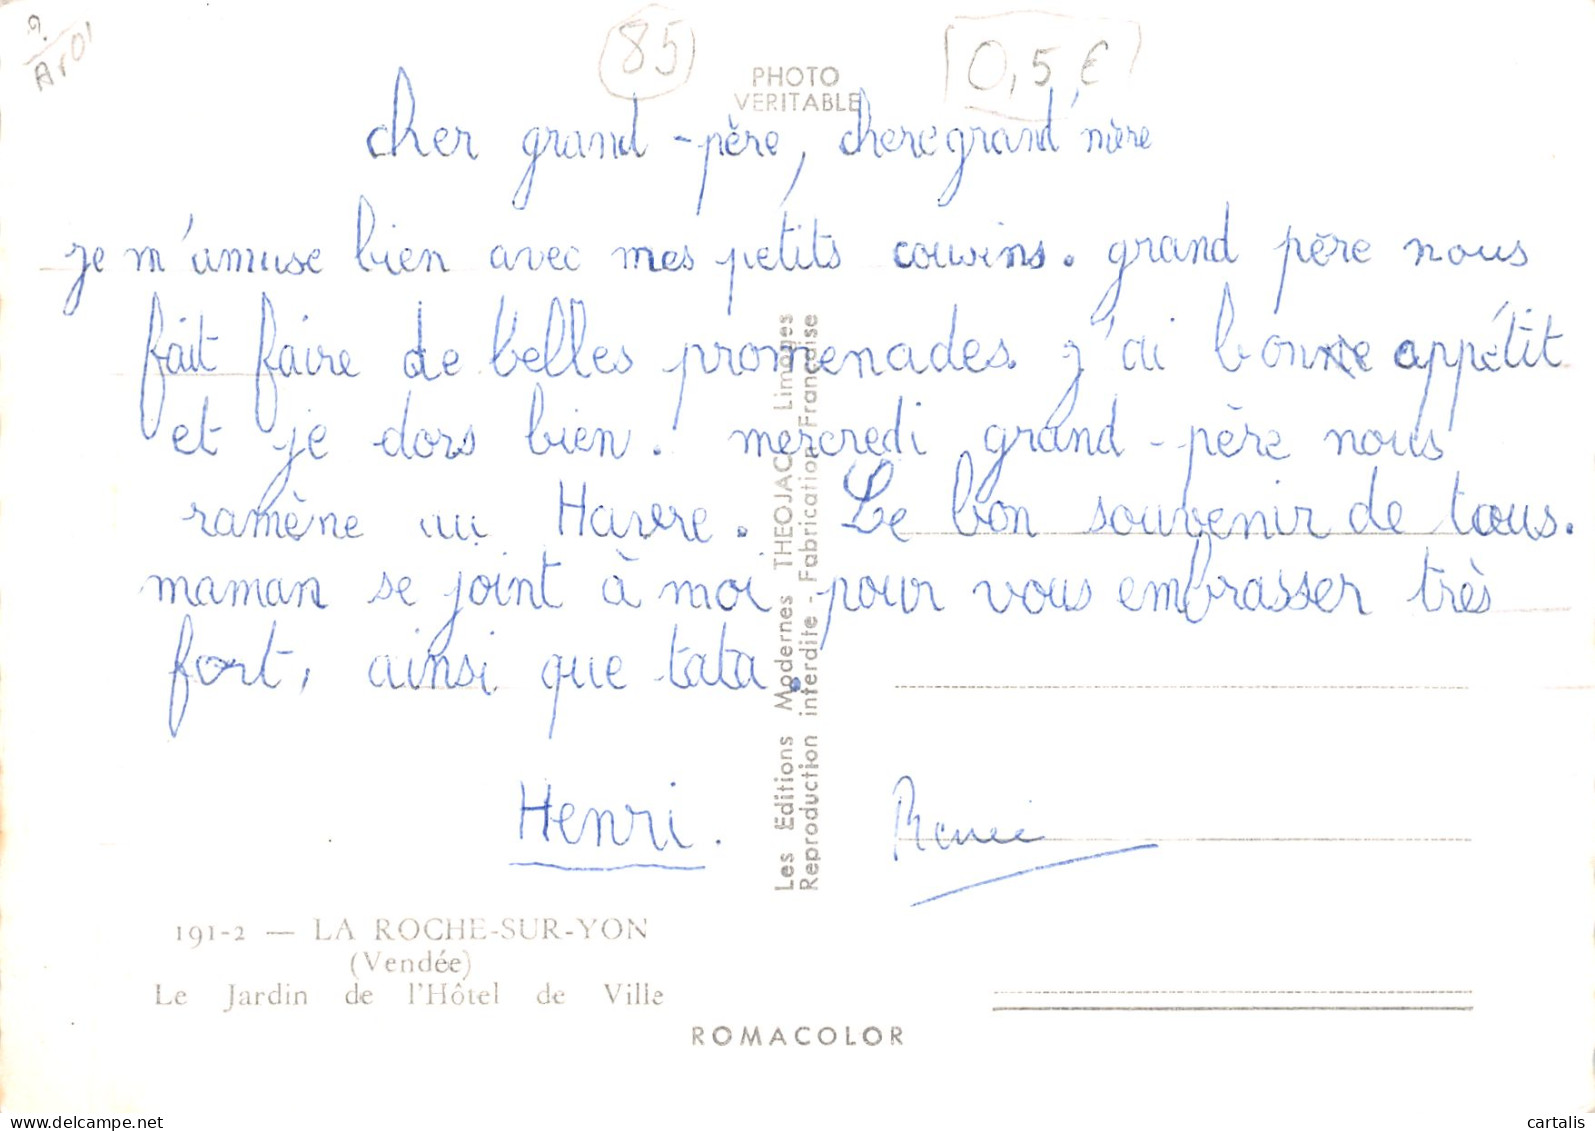 85
0,5 €
PHOTO
VERITABLE
cher grand-père, chere grand'mère
je m'amuse bien avec mes petits cousins. grand père nous
fait faire de belles promenades. j'ai bon appétit
et je dors bien. mercredi grand-père nous
ramène au Havre. Le bon souvenir de tous.
maman se joint à moi pour vous embrasser très
fort, ainsi que tata.
Henri.
Les Editions Modernes THEOJAC Limoges
Reproduction interdite - Fabrication Française
191-2 — LA ROCHE-SUR-YON
(Vendée)
Le Jardin de l'Hôtel de Ville
ROMACOLOR
delcampe.net
cartalis